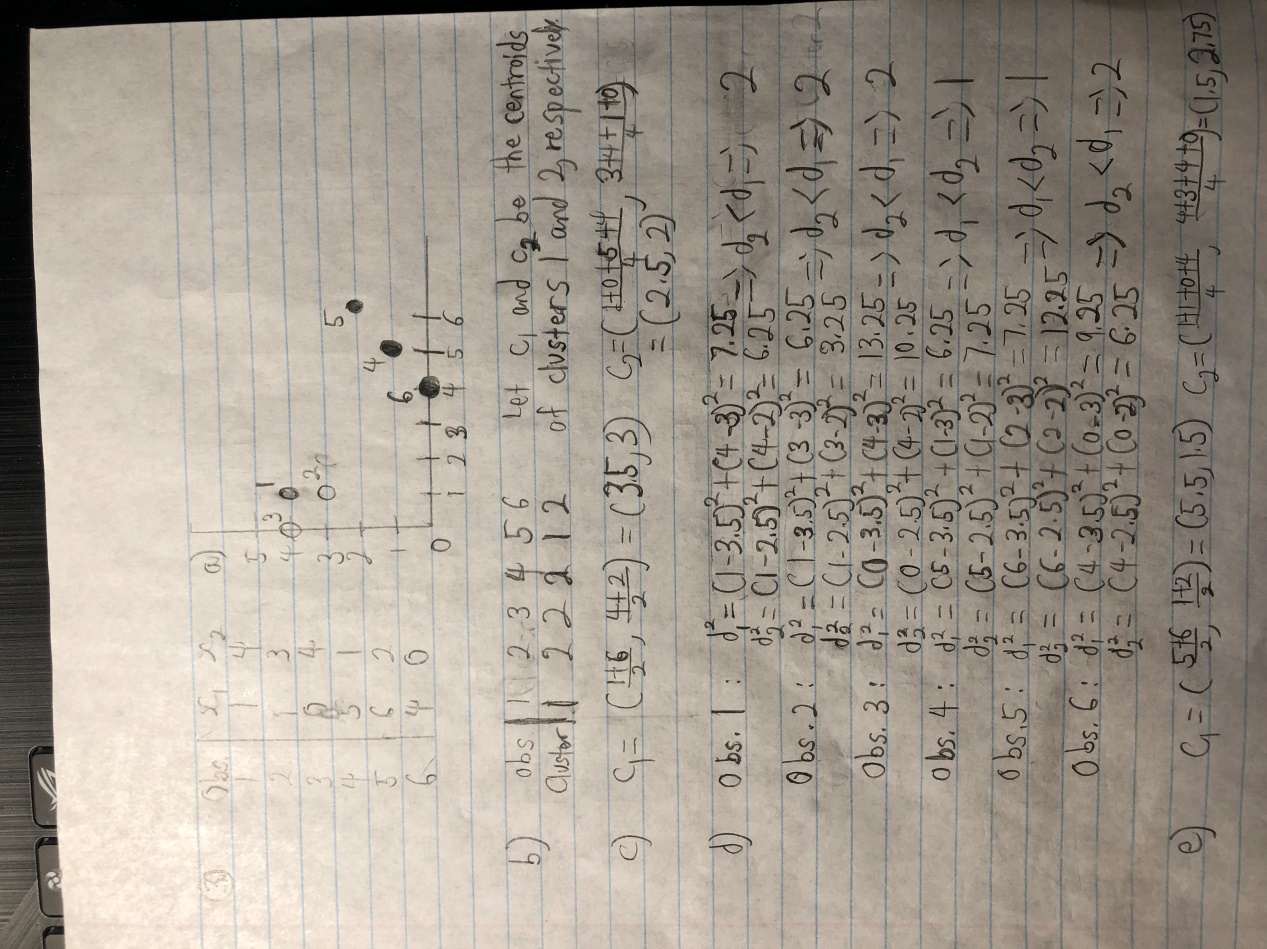 (3) Obs. x₁ x₂ a)
1 1 4
2 1 3
3 0 4
4 5 1
5 6 2
6 4 0
5
4
3
2
1
0 1 2 3 4 5 6
3 1
2
6 4 5
b) obs | 1 2 3 4 5 6 Let c₁ and c₂ be the centroids
Cluster | 1 2 2 2 1 2 of clusters 1 and 2, respectively.
c) c₁ = (1+6/2, 4+2/2) = (3.5, 3) c₂ = (1+0+5+4/4, 3+4+1+0/4)
= (2.5, 2)
d) Obs. 1 : d₁² = (1-3.5)² + (4-3)² = 7.25 => d₂ < d₁ => 2
d₂² = (1-2.5)² + (4-2)² = 6.25
Obs. 2 : d₁² = (1-3.5)² + (3-3)² = 6.25 => d₂ < d₁ => 2
d₂² = (1-2.5)² + (3-2)² = 3.25
Obs. 3 : d₁² = (0-3.5)² + (4-3)² = 13.25 => d₂ < d₁ => 2
d₂² = (0-2.5)² + (4-2)² = 10.25
Obs. 4 : d₁² = (5-3.5)² + (1-3)² = 6.25 => d₁ < d₂ => 1
d₂² = (5-2.5)² + (1-2)² = 7.25
Obs. 5 : d₁² = (6-3.5)² + (2-3)² = 7.25 => d₁ < d₂ => 1
d₂² = (6-2.5)² + (2-2)² = 12.25
Obs. 6 : d₁² = (4-3.5)² + (0-3)² = 9.25 => d₂ < d₁ => 2
d₂² = (4-2.5)² + (0-2)² = 6.25
e) c₁ = (5+6/2, 1+2/2) = (5.5, 1.5) c₂ = (1+1+0+4/4, 4+3+4+0/4) = (1.5, 2.75)